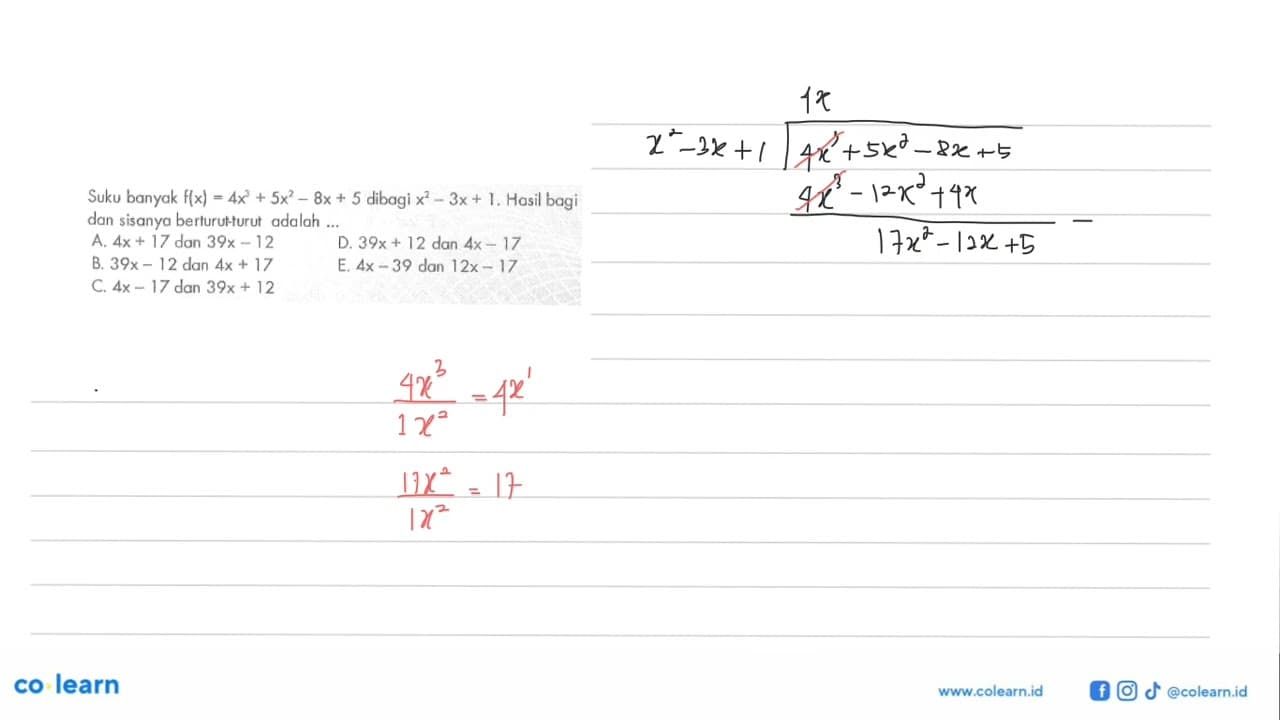 Suku banyak f(x) = 4x³ + 5x² – 8x + 5 dibagi x² – 3x + 1. Hasil bagi
dan sisanya berturut-turut adalah ...
A. 4x + 17 dan 39x – 12
B. 39x – 12 dan 4x + 17
C. 4x – 17 dan 39x + 12
D. 39x + 12 dan 4x – 17
E. 4x – 39 dan 12x – 17
4x
x² – 3x + 1 4x³ + 5x² – 8x + 5
4x³ – 12x² + 4x
–
17x² – 12x + 5
4x³
1x²
= 4x¹
17x²
1x²
= 17
co learn
www.colearn.id
@colearn.id